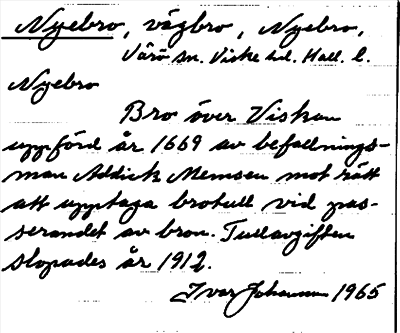 Nyebro, vägbro, Nyebro,
Värö sn. Viske hd. Hall. l.
Nyebro
Bro över Viskan
uppförd år 1669 av befallnings-
man Addick Memsen mot rätt
att upptaga brotull vid pas-
serandet av bron. Tullavgiften
slopades år 1912.
Ivar Johansson 1965